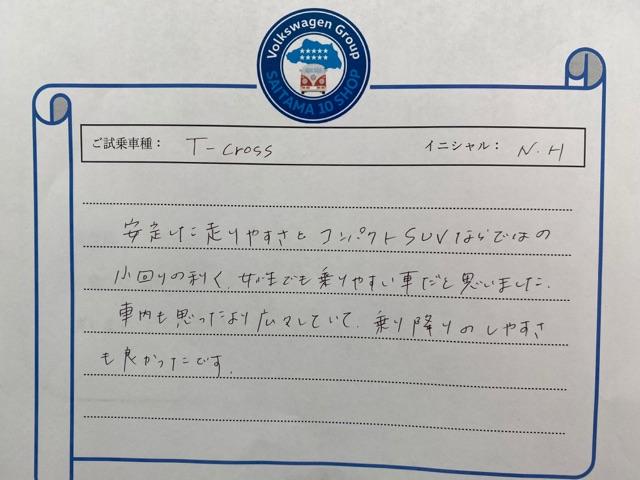 Volkswagen Group
SAITAMA 10 SHOP
ご試乗車種： T-cross イニシャル： N.H
安定した走りやすさとコンパクトSUVならではの
小回りの利く、女性でも乗りやすい車だと思いました。
車内も思ったより広々していて、乗り降りのしやすさ
も良かったです。